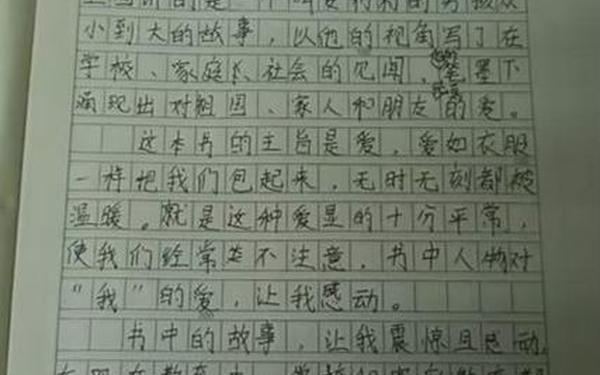 小到大的故事，以他的视角写了在
学校、家庭、社会的见闻，笔墨下
涌现出对祖国、家人和朋友的爱。
这本书的主旨是爱，爱如衣服
一样把我们包起来，无时无刻都被
温暖。就是这种爱显的十分平常，
使我们经常并不注意，书中人物对
“我”的爱，让我感动。
书中的故事，让我震惊且感动，